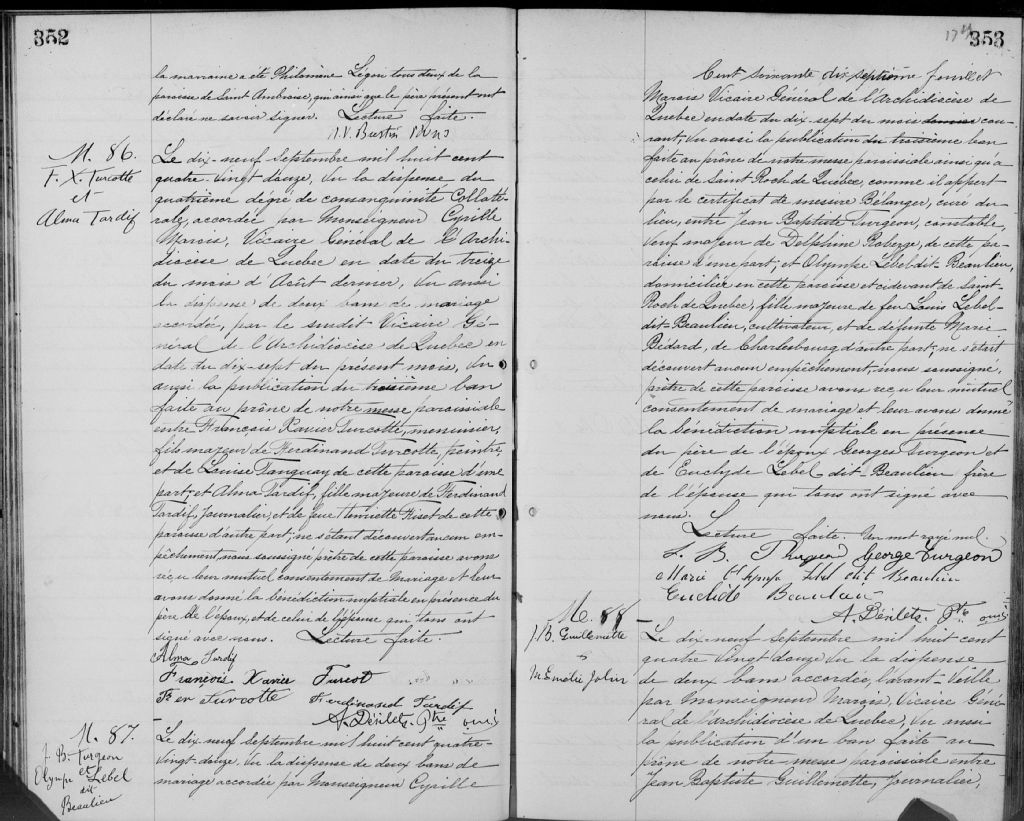 352
la marraine a été Philomène Légaré tous deux de la
paroisse de Saint Ambroise, qui ainsi que le père présent ont
déclaré ne savoir signer. Lecture faite.
M. 86.
F. X. Turcotte
et
Alma Tardif
Le dix-neuf Septembre mil huit cent
quatre-vingt douze, Vu la dispense du
quatrième dégré de consanguinité Collaté-
rale, accordée par Monseigneur Cyrille
Marois, Vicaire Général de l'Archi-
diocèse de Quebec en date du treize
du mois d'Août dernier, Vu aussi
la dispense de deux bans de mariage
accordée, par le susdit Vicaire Gé-
néral de l'Archidiocèse de Quebec en
date du dix-sept du présent mois, Vu
aussi la publication du troisième ban
faite au prône de notre messe paroissiale
entre François Xavier Turcotte, menuisier,
fils majeur de Ferdinand Turcotte, peintre,
et de Louise Tanguay de cette paroisse d'une
part; et Alma Tardif, fille majeure de Ferdinand
Tardif, Journalier, et de feue Henriette Fiset de cette
paroisse d'autre part; ne s'étant découvert aucun em-
pêchement, nous soussigné prêtre de cette paroisse avons
reçu leur mutuel consentement de Mariage et leur
avons donné la bénédiction nuptiale en présence du
père de l'époux, et de celui de l'épouse qui tous ont
signé avec nous. Lecture faite.
Alma Tardif
François Xavier Turcot
Fer Turcotte Ferdinand Tardif
M. 87.
J. B. Turgeon
et
Olympe Lebel
dit
Beaulieu
Le dix neuf Septembre mil huit cent quatre-
vingt douze, Vu la dispense de deux bans de
mariage accordée par Monseigneur Cyrille
353
Cent soixante dix septième feuillet
Marois Vicaire Général de l'Archidiocèse de
Quebec en date du dix-sept du mois dernier cou-
rant, Vu aussi la publication du troisième ban
faite au prône de notre messe paroissiale ainsi qu'à
celui de Saint Roch de Québec, comme il appert
par le certificat de messire Bélanger, curé du
lieu, entre Jean Baptiste Turgeon, constable,
Veuf majeur de Delphine Roberge, de cette pa-
roisse d'une part; et Olympe Lebel dit-Beaulieu,
domiciliée en cette paroisse et cidevant de Saint-
Roch de Quebec, fille majeure de feu Louis Lebel-
dit-Beaulieu, cultivateur, et de défunte Marie
Bédard, de Charlesbourg d'autre part; ne s'étant
découvert aucun empêchement, nous soussigné,
prêtre de cette paroisse avons reçu leur mutuel
consentement de mariage et leur avons donné
la bénédiction nuptiale en présence
du père de l'époux Georges Turgeon et
de Euclyde Lebel dit-Beaulieu frère
de l'épouse qui tous ont signé avec
nous.
Lecture faite. Un mot rayé nul.
J. B. Turgeon George Turgeon
Marie Olympe Lebel dit Beaulieu
Euclide Beaulieu
M. 88
J. B. Guillemette
M. Emélie Jobin
Le dix-neuf Septembre mil huit cent
quatre vingt douze Vu la dispense
de deux bans accordée, l'avant-veille
par Monseigneur Marois, Vicaire Géné-
ral de l'archidiocèse de Quebec, Vu aussi
la publication d'un ban faite au
prône de notre messe paroissiale entre
Jean Baptiste Guillemette, Journalier,